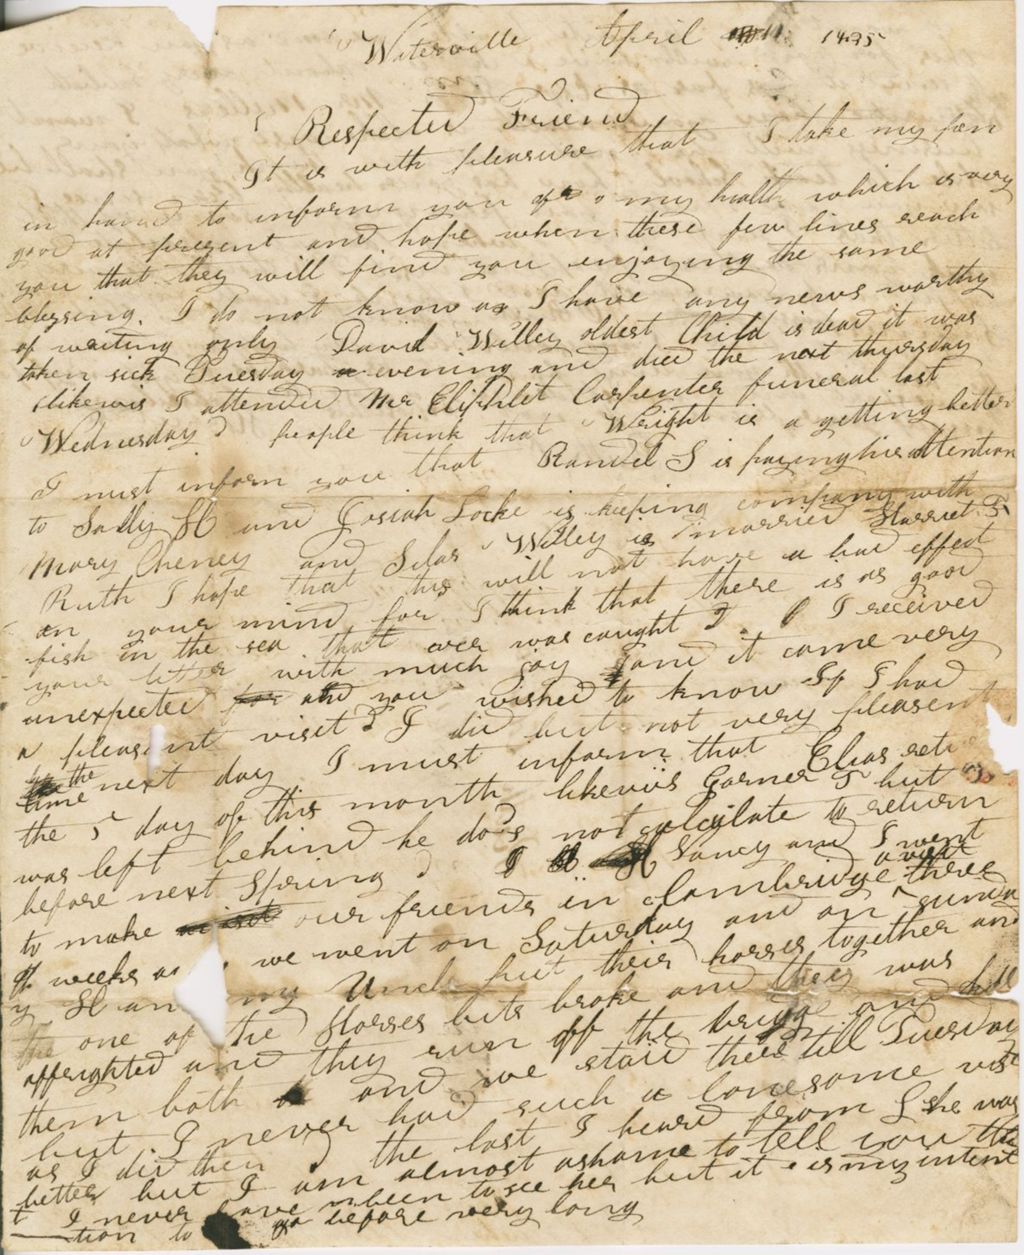 Waterville April 11 1835
Respected Friend
It is with pleasure that I take my pen
in hand to inform you of my health which is very
good at present and hope when these few lines reach
you that they will find you enjoying the same
blessing. I do not know as I have any news worthy
of writing only David Willey oldest Child is dead it was
taken sick Tuesday evening and died the next thursday
likewis I attended Mr Eliphlet Carpenter funeral last
Wednesday people think that Wright is a getting better
I must inform you that Randel S is paying his attention
to Sally H and Josiah Locke is keeping company with
Mary Cheney and Silas Willey is married Harriet F
Ruth I hope that this will not have a bad effect
on your mind for I think that there is as good
fish in the sea that ever was caught I received
your letter with much joy and it came very
unexpected and you wished to know If I had
a pleasant visit I did but not very pleasent
time the next day I must inform that Elias
the 5 day of this month likewis Garner S but
was left behind he dos not calculate to return
before next Spring I Nancy and I went
to make our friends in Cambridge a visit three
weeks we went on Saturday and on
H and my Uncl put their horses together and
the one of the Horses bits broke and they was
affrighted and they run off the bridge and
them both and we staid there till Tuesday
but I never had such a lonesome visit
as I did then the last I heard from L she was
better but I am almost ashame to tell you
I never have been to see her but it is my intent
tion to go before very long